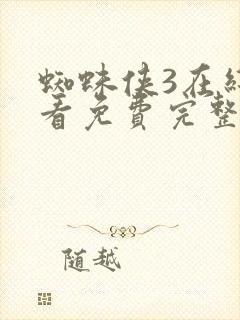 蜘蛛侠3在线
看免费完整
随越